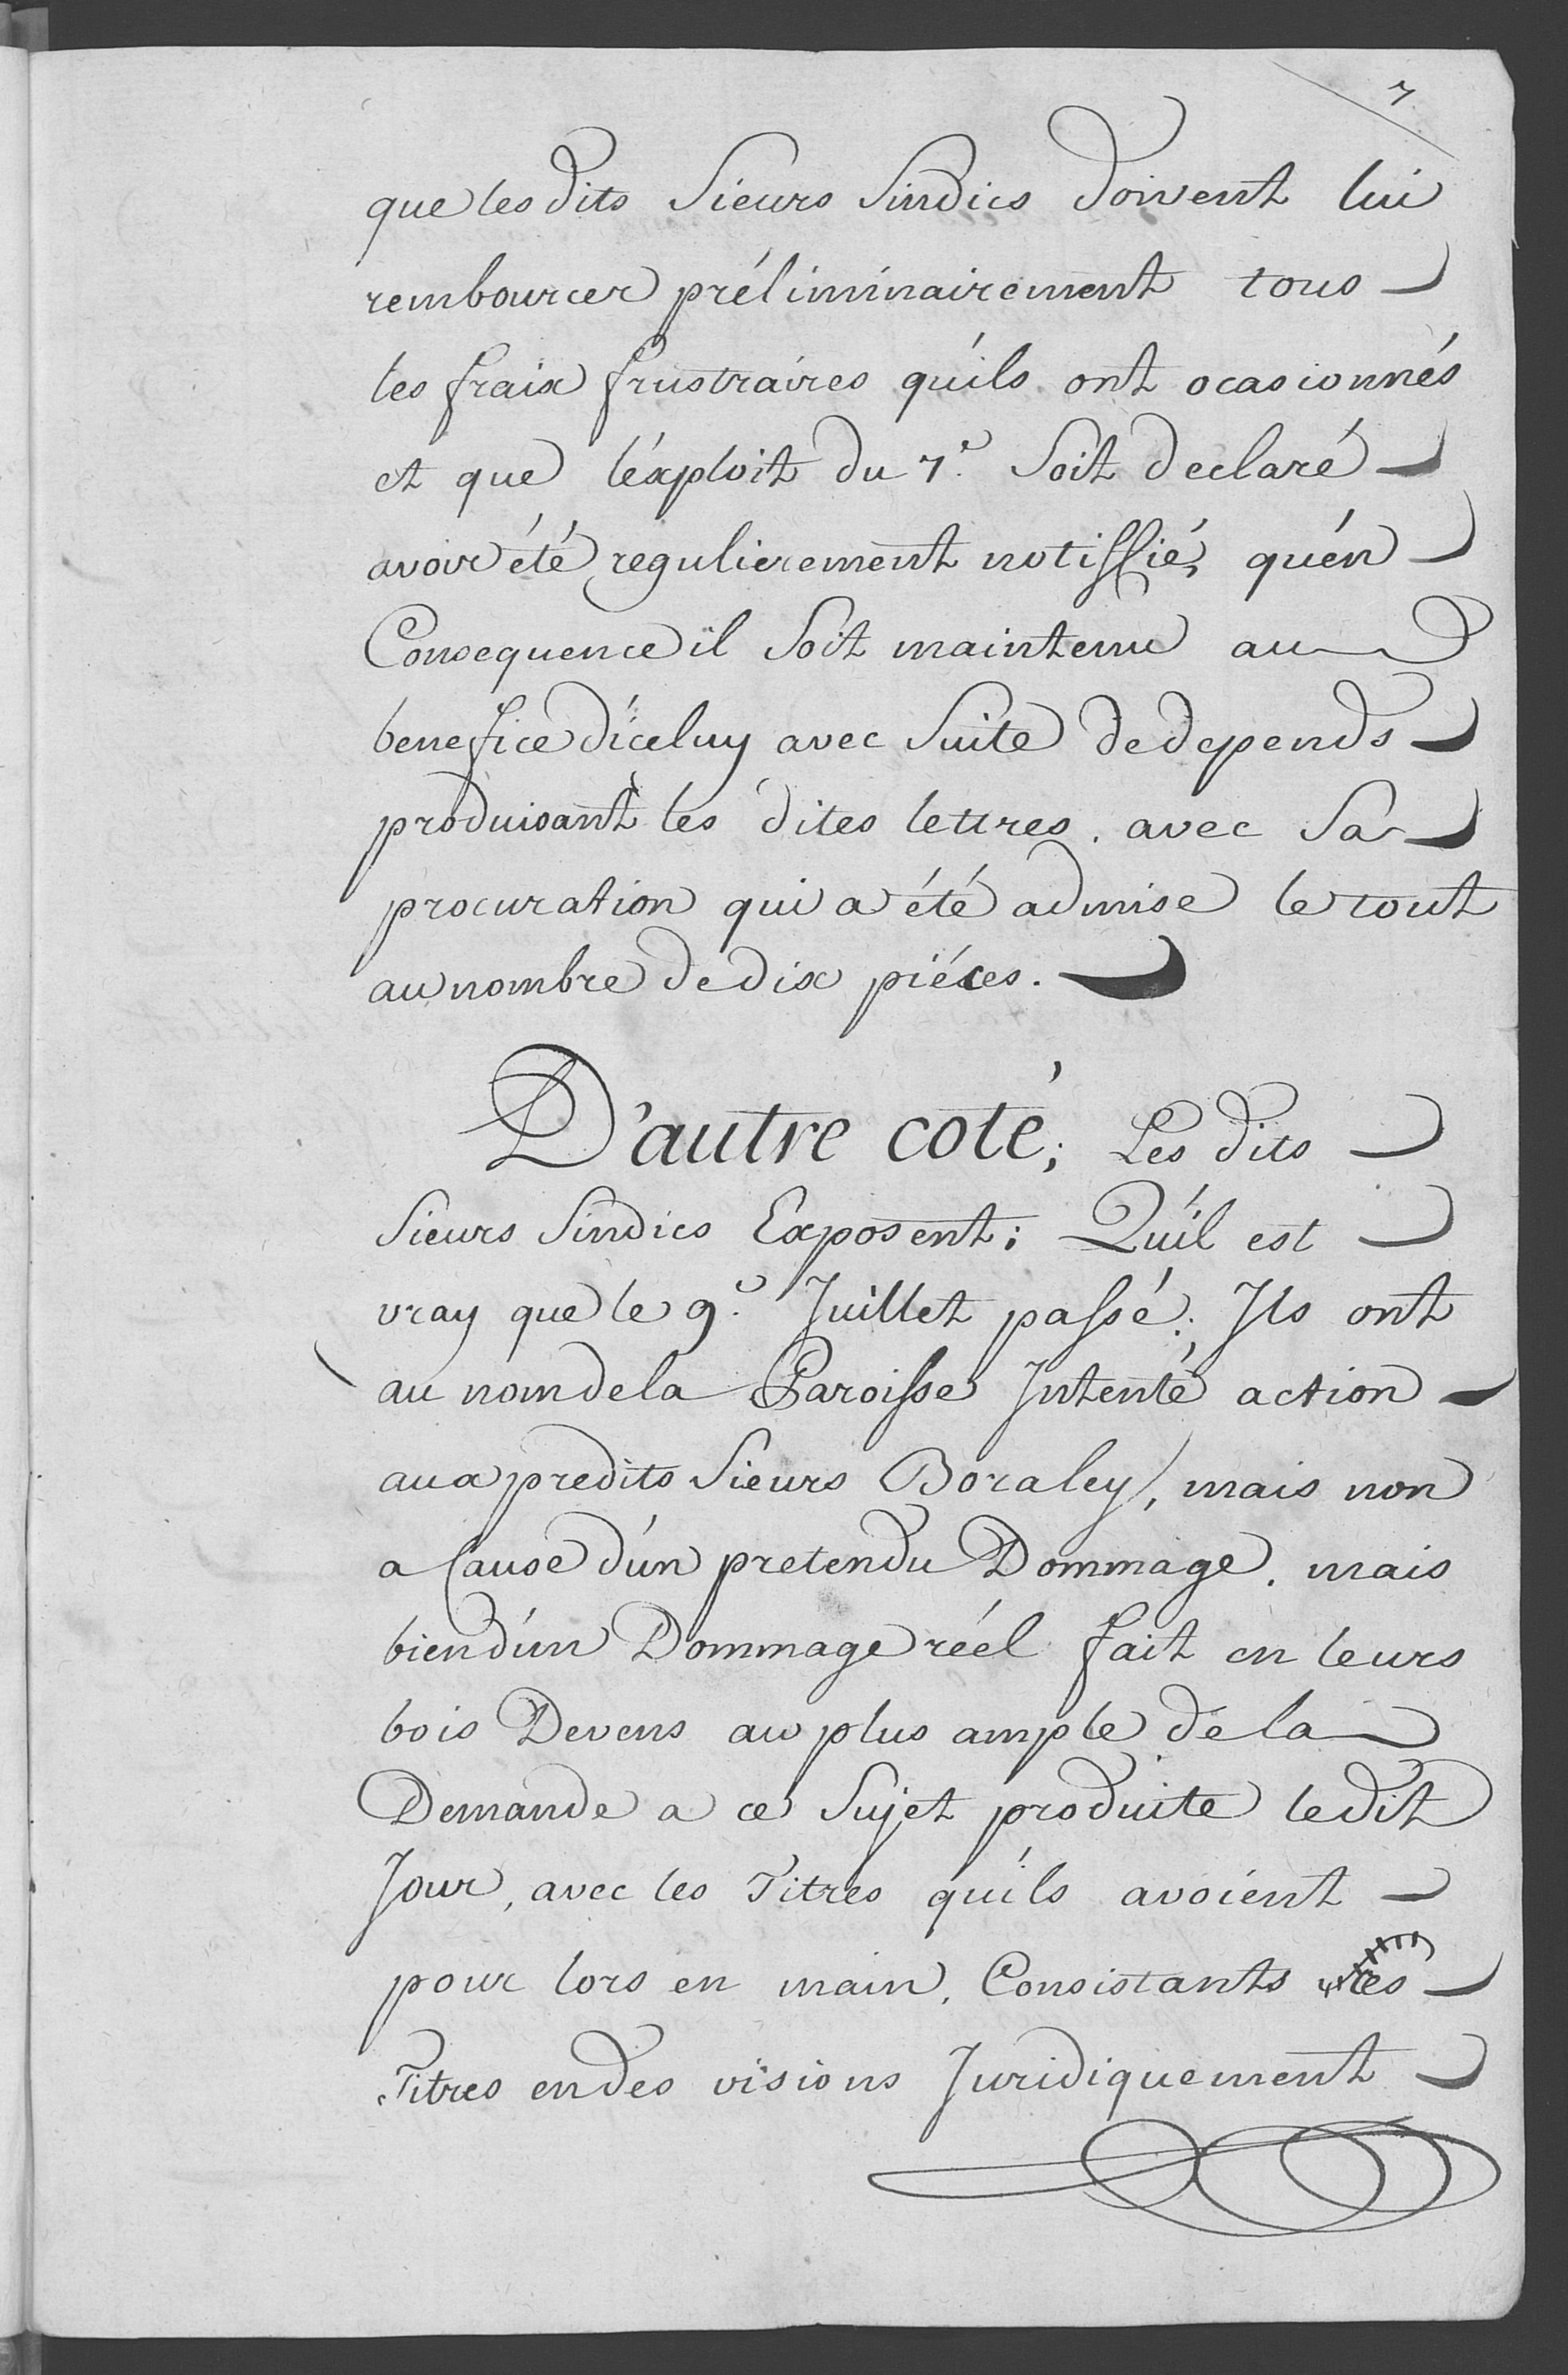 7
que les dits Sieurs Sindics doivent lui
rembourcer préliminairement tous
les fraix frustraires qu'ils ont ocasionnés
et que l'éxploit du 7e. Soit declaré
avoir été regulierement notiffié, qu'én
Consequence il Soit maintenu au
benefice d'iceluy avec Suite de depends
produisant les dites lettres. avec Sa
procuration qui a été admise le tout
au nombre de dix piéces.
D'autre coté; Les dits
Sieurs Sindics Exposent; Qu'il est
vray que le 9e. Juillet passé; Ils ont
au nom de la Paroisse Intenté action
aux predits Sieurs Boraley, mais non
a Cause d'un pretendu Dommage. mais
bien d'un Dommage réel fait en leurs
bois Devens au plus ample de la
Demande a ce Sujet produite le dit
Jour, avec les Titres qu'ils avoient
pour lors en main, Consistants
Titres en des visions Juridiquement